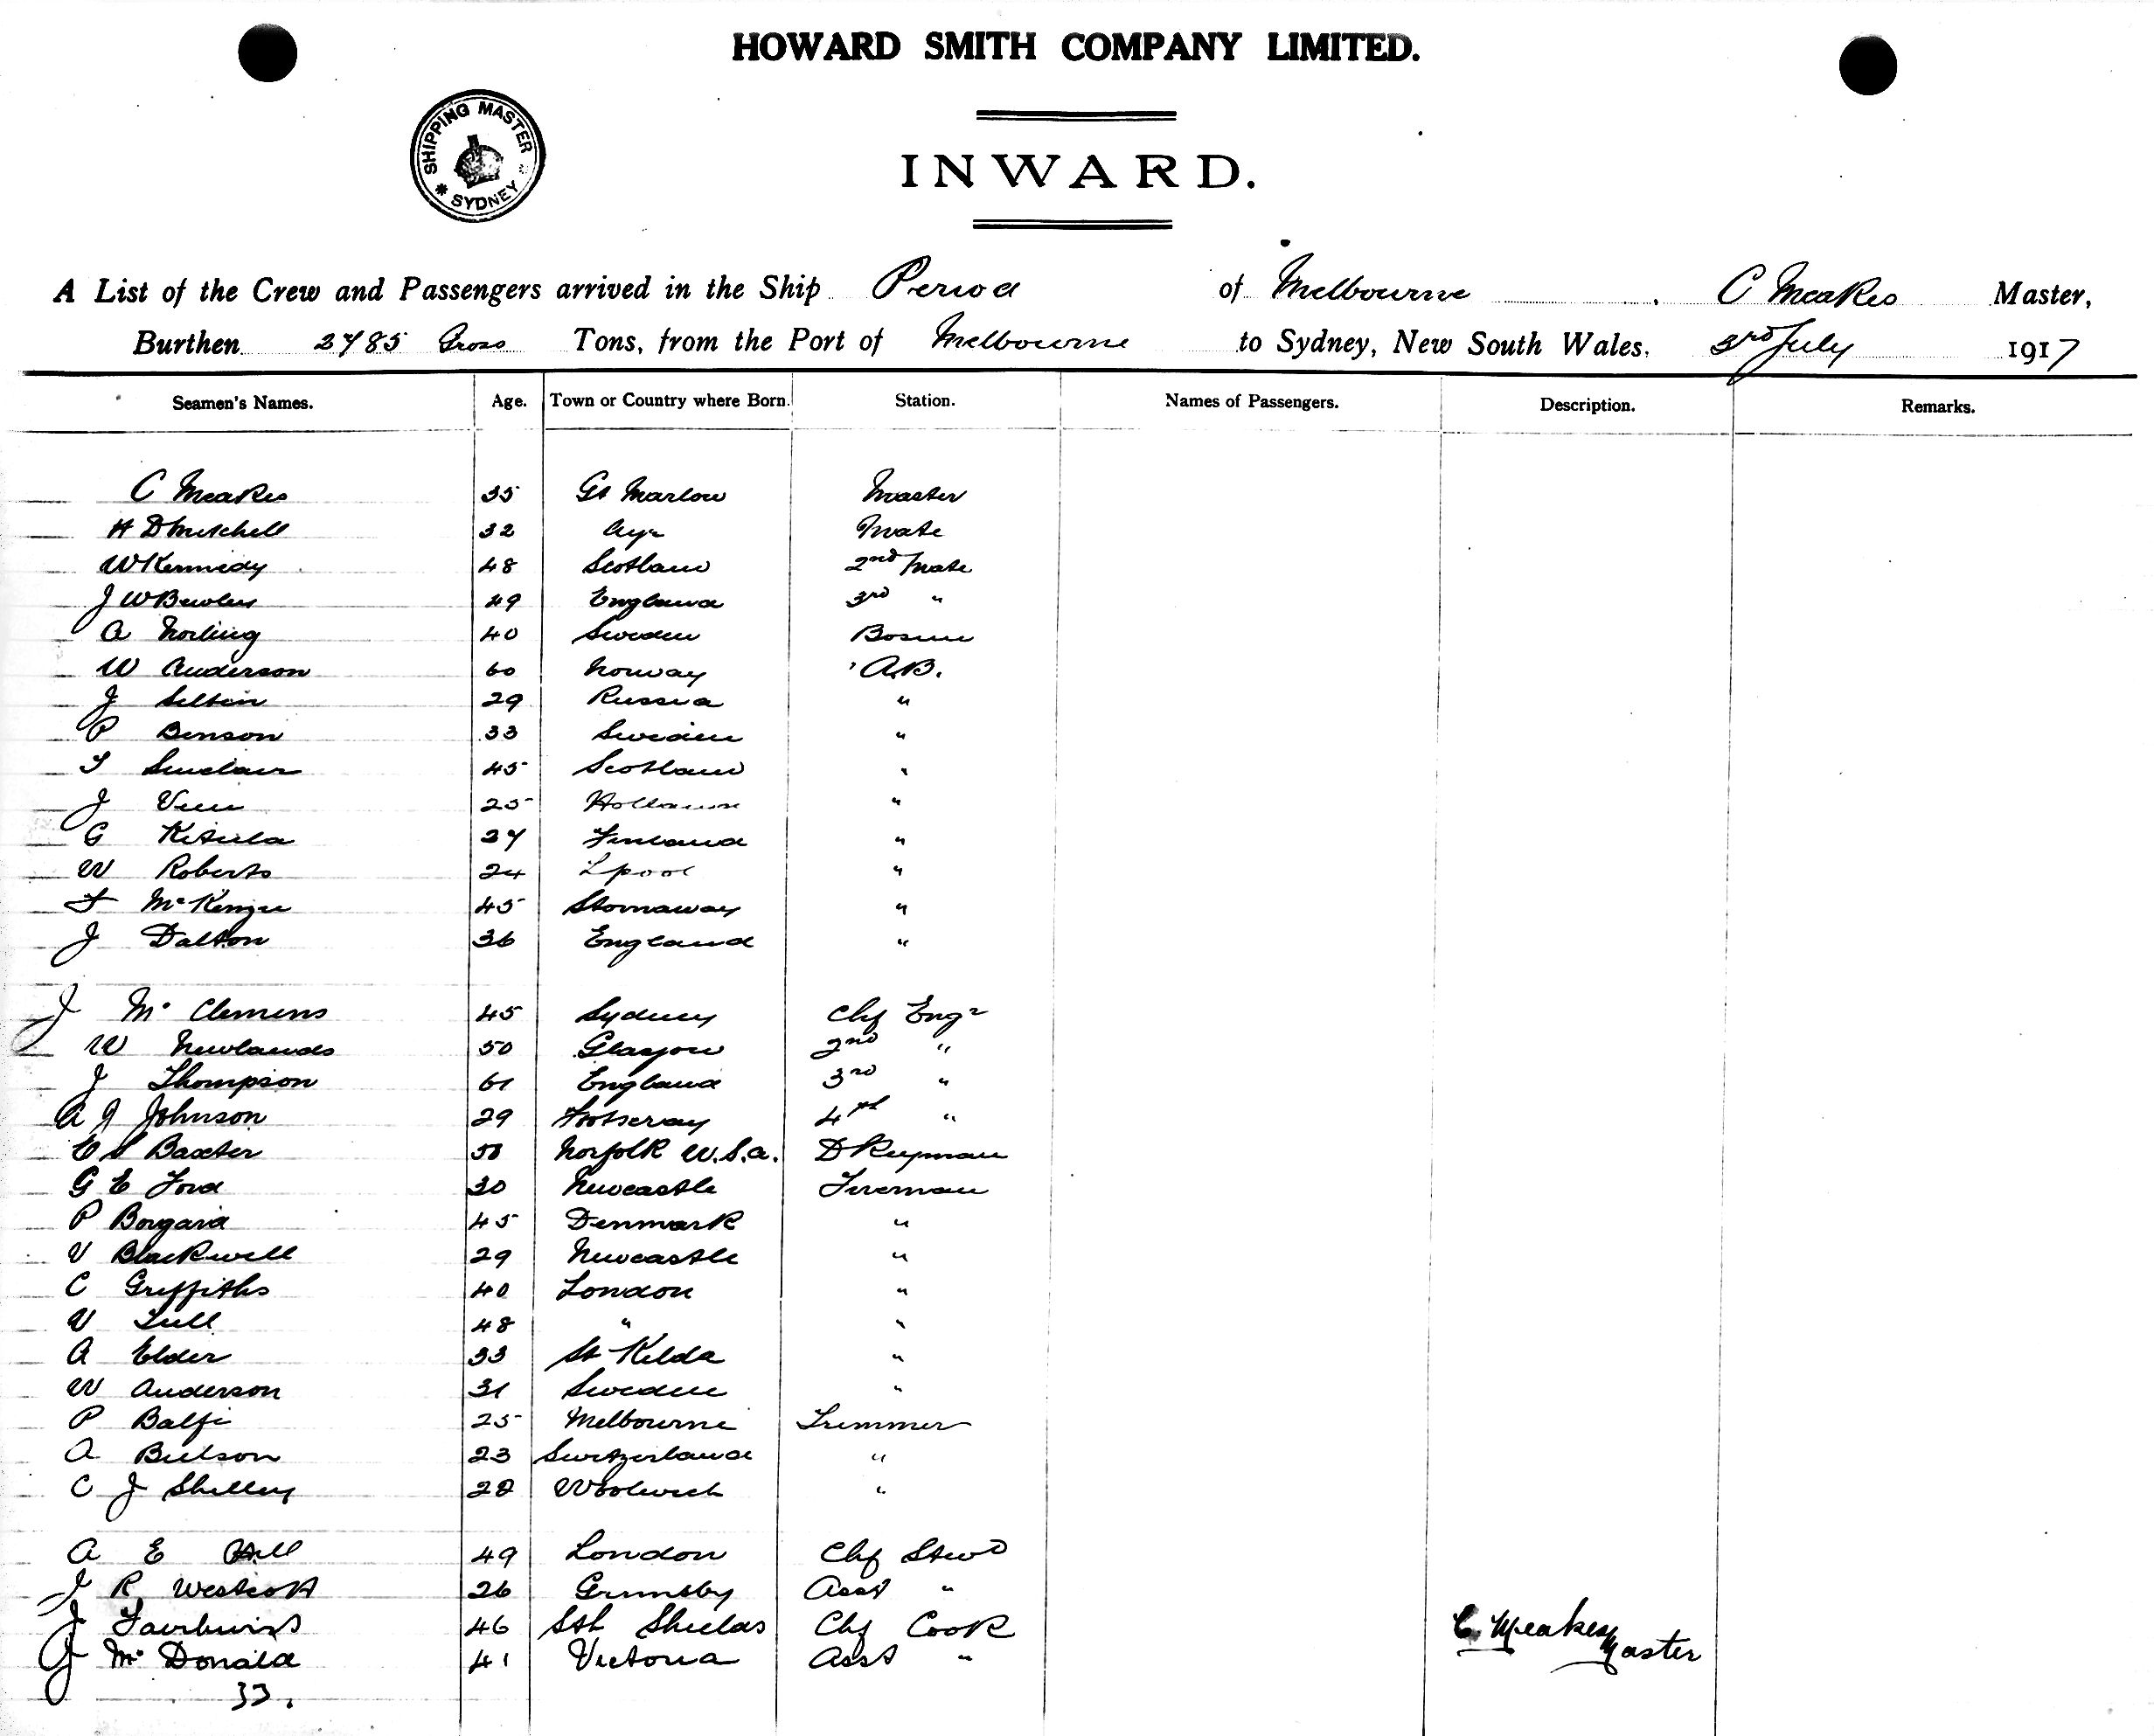 HOWARD SMITH COMPANY LIMITED.
SHIPPING MASTER SYDNEY
INWARD.
A List of the Crew and Passengers arrived in the Ship Period of Melbourne, C Meakes Master,
Burthen 2785 Gross Tons, from the Port of Melbourne to Sydney, New South Wales, 3rd July 1917
Seamen's Names. Age. Town or Country where Born. Station. Names of Passengers. Description. Remarks.
C Meakes 35 Gt Marlow Master
H D Mitchell 32 Ayr Mate
W Kennedy 48 Scotland 2nd Mate
J W 49 England 3rd "
A Norling 40 Sweden Bosun
W Anderson 60 Norway A.B.
J 29 Russia "
P Benson 33 Sweden "
T Sinclair 45 Scotland "
J 25 Holland "
G 27 Finland "
W Roberts 24 Lpool "
F McKenzie 45 Stornaway "
J Dalton 36 England "
J Mc Clemens 45 Sydney Chf Engr
W Newlands 50 Glasgow 2nd "
J Thompson 61 England 3rd "
A J Johnson 29 Footscray 4th "
E S Baxter Norfolk U.S.A. D Keepman
G E Ford 30 Newcastle Fireman
P Borgard 45 Denmark "
V Blackwell 29 Newcastle "
C Griffiths 40 London "
V 48 " "
A Elder 33 St Kilda "
W Anderson 31 Sweden "
P Balfe 25 Melbourne Trimmer
A 23 Switzerland "
C J Shelley 28 Woolwich "
A E Hill 49 London Chf Stwd
J R Westcott 26 Grimsby Asst "
J 46 Sth Shields Chf Cook
J Mc Donald 41 Victoria Asst "
C. Meakes Master
33.